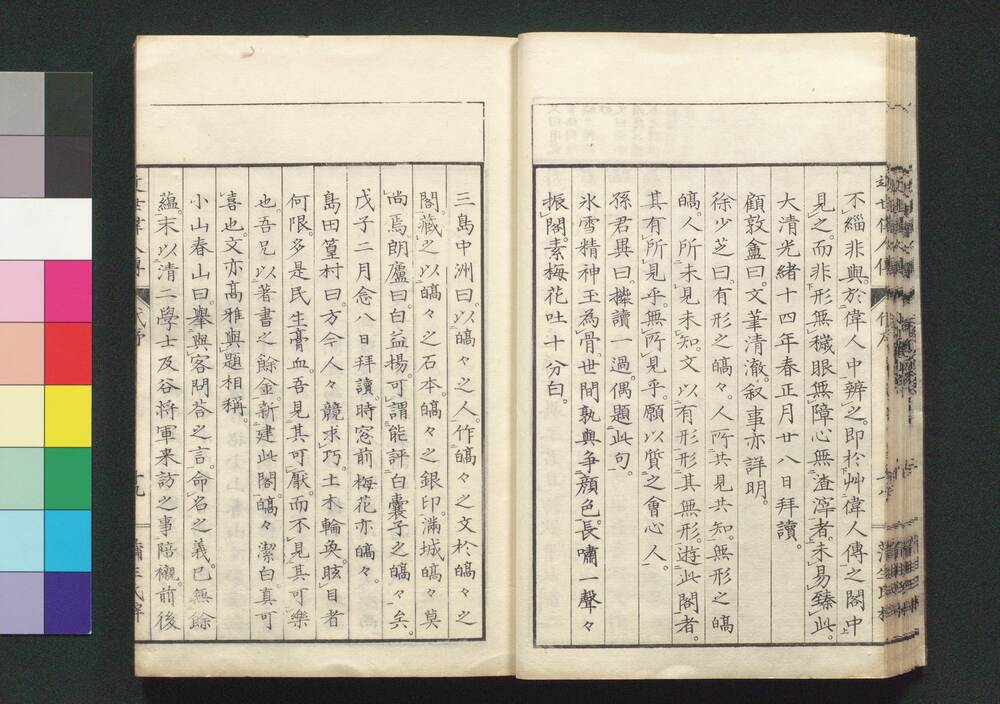 不緇非與。於偉人中辨之。即於艸偉人傳之閣中
見之。而非形無穢眼無障心無渣滓者。未易臻此。
大清光緒十四年春正月廿八日拜讀。
顧敦盦曰。文筆清澈。叙事亦詳明。
徐少芝曰。有形之皜々。人所共見共知。無形之皜
皜。人所未見未知。文以有形形其無形。遊此閣者。
其有所見乎。無所見乎。願以質之會心人。
孫君異曰。擁讀一過。偶題此句。
氷雪精神玉為骨。世間孰與争顔色。長嘯一聲々
振閣。素梅花吐十分白。
三島中洲曰。以皜々之人。作皜々之文於皜々之
閣。藏之以皜々之石本。皜々之銀印。滿城皜々莫
尚焉。朗廬曰。白益楊。可謂能評白囊子之皜々矣。
戊子二月念八日拜讀。時窓前梅花亦皜々。
島田篁村曰。方今人々競求巧。土木輪奐。眩目者
何限。多是民生膏血。吾見其可厭。而不見其可樂
也。吾兄以著書之餘金。新建此閣。皜々潔白。真可
喜也。文亦高雅與題相稱。
小山春山曰。舉與客問荅之言。命名之義。已無餘
蘊。末以清二學士及谷将軍来訪之事。陪襯前後